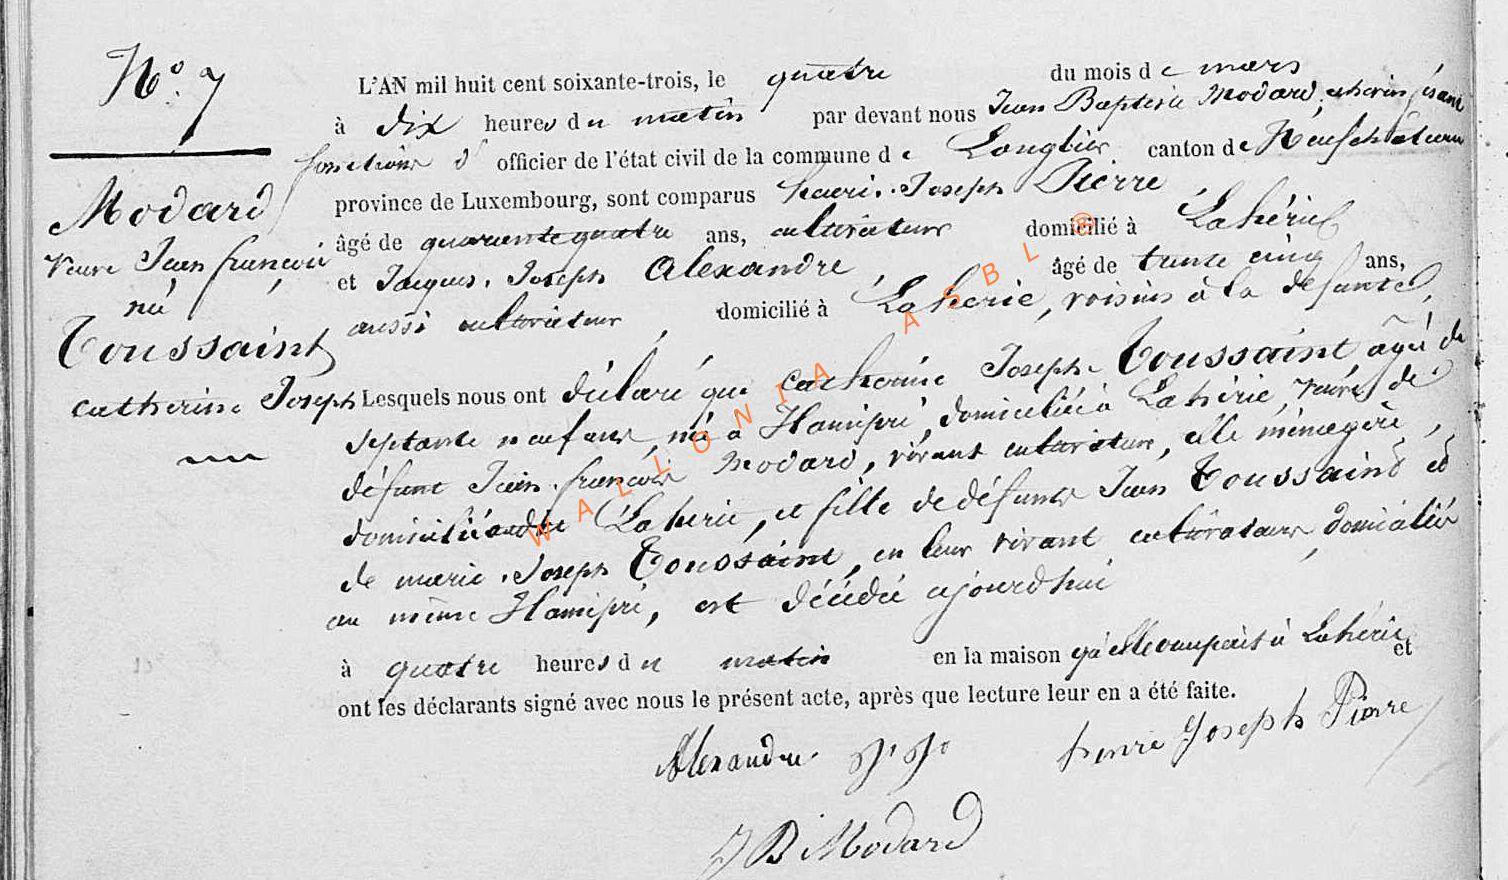 N.° 7
Modard
veuve Jean françois
né
Toussaint
catherine Joseph
L'AN mil huit cent soixante-trois, le quatre du mois de mars
à dix heures du matin par devant nous Jean Baptiste Modard, echevin fesant
fonctions d' officier de l'état civil de la commune de Longlier canton de Neufchateau
province de Luxembourg, sont comparus henri. Joseph Pierre,
âgé de quarante quatre ans, cultivateur domicilié à Lahérie
et Jacques. Joseph Alexandre, âgé de trente cinq ans,
aussi cultivateur, domicilié à Laherie, voisins à la défunte,
Lesquels nous ont déclaré que catherine Joseph Toussaint âgée de
septante neuf ans, née à Hamipré, domiciliée à Lahérie, veuve de
défunt Jean. françois Modard, vivant cultivateur, elle ménagère,
domiciliée audit Laherie, et fille de défunts Jean Toussaint et
de marie. Joseph Toussaint, en leur vivant cultivateurs, domiciliés
au même Hamipré, est décédée ajourdhui
à quatre heures du matin en la maison qu'elle occupait à Lahérie et
ont les déclarants signé avec nous le présent acte, après que lecture leur en a été faite.
Alexandre J. Jo henri Joseph Pierre
J B Modard
WALLONIA ASBL ®